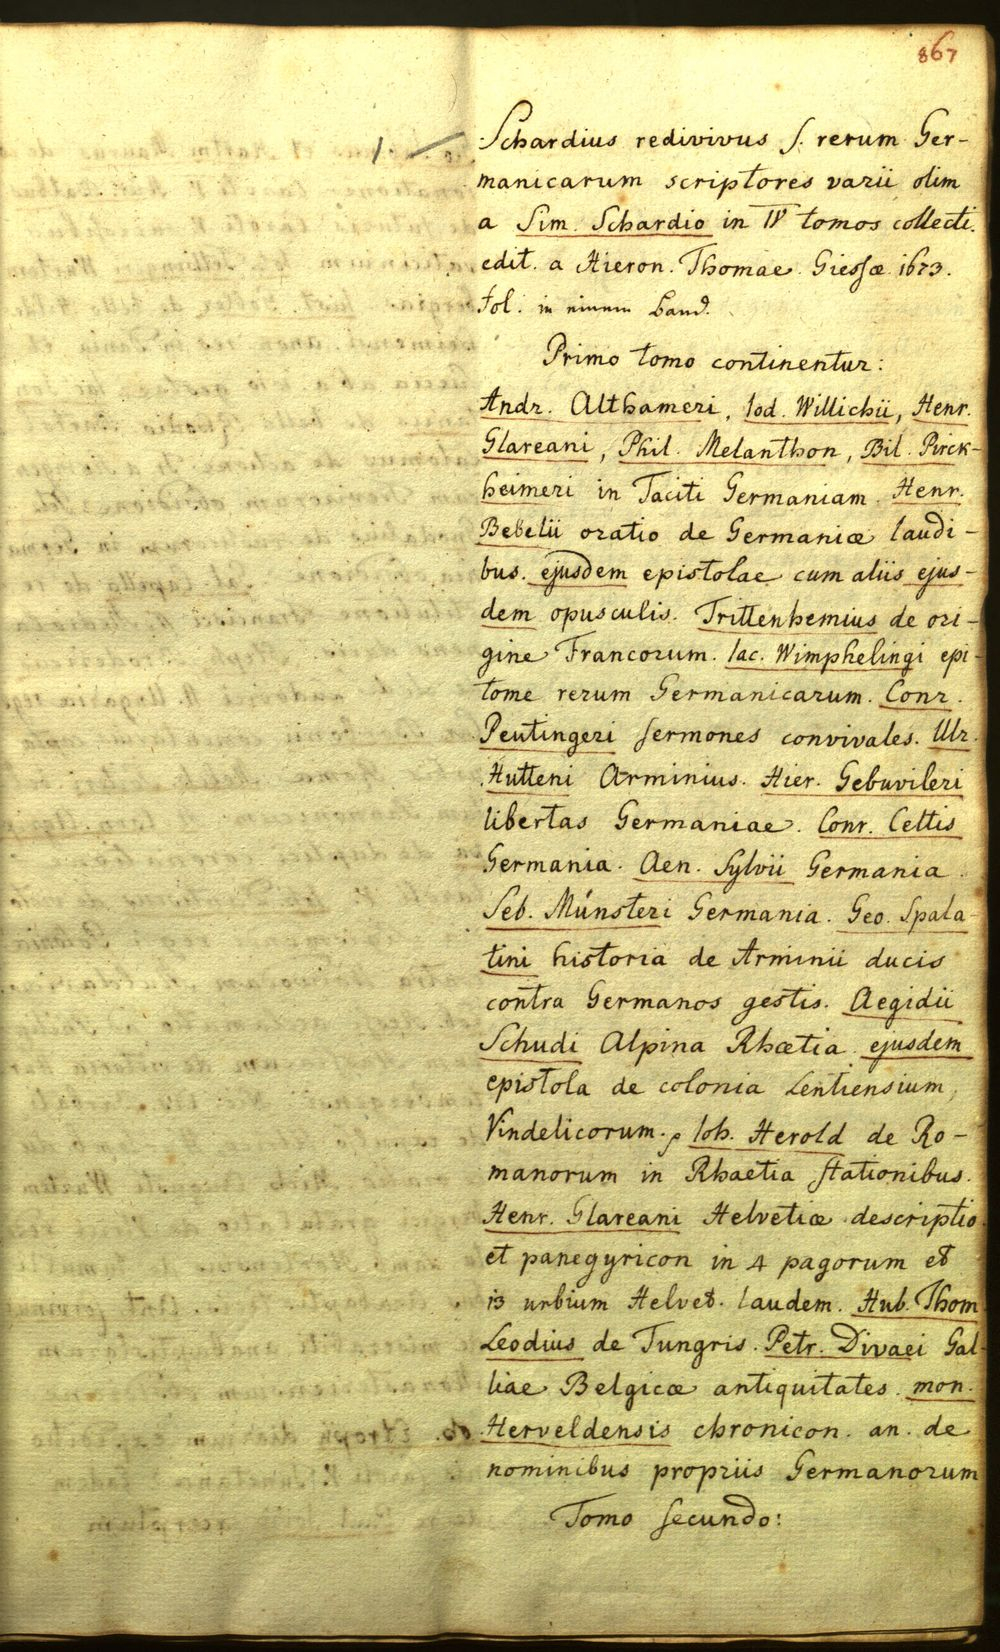 867
1
Schardius redivivus s. rerum Ger-
manicarum scriptores varii olim
a Sim. Schardio in IV tomos collecti.
edit. a Hieron. Thomae. Giessæ 1673.
fol. in einem Band.
Primo tomo continentur:
Andr. Althameri, Iod. Willichii, Henr.
Glareani, Phil. Melanthon, Bil. Pirck-
heimeri in Taciti Germaniam. Henr.
Bebelii oratio de Germaniæ laudi-
bus. ejusdem epistolae cum aliis ejus-
dem opusculis. Trittenhemius de ori-
gine Francorum. Iac. Wimphelingi epi-
tome rerum Germanicarum. Conr.
Peutingeri sermones convivales. Ulr.
Hutteni Arminius. Hier. Gebuvileri
libertas Germaniae. Conr. Celtis
Germania. Aen. Sylvii Germania.
Seb. Münsteri Germania. Geo. Spala-
tini historia de Arminii ducis
contra Germanos gestis. Aegidii
Schudi Alpina Rhætia ejusdem
epistola de colonia Lentiensium,
Vindelicorum. Ioh. Herold de Ro-
manorum in Rhaetia stationibus.
Henr. Glareani Helvetiæ descriptio
et panegyricon in 4 pagorum et
13 urbium Helvet. laudem. Hub. Thom.
Leodius de Tungris. Petr. Divaei Gal-
liae Belgicæ antiquitates. mon.
Herveldensis chronicon. an. de
nominibus propriis Germanorum
Tomo secundo: